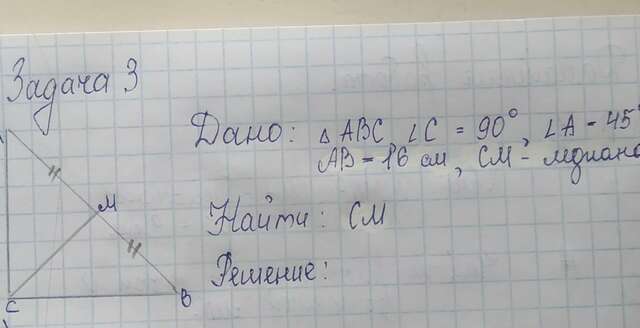 Задача 3
Дано: △ ABC, ∠C = 90°, ∠A - 45°
AB - 16 см, СМ - медиана
Найти: СМ
Решение:
M
C
B